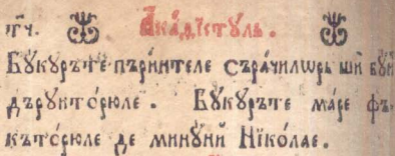 тгч. Акаѳістꙋль.
Бꙋкꙋрѣте пъринтеле сърачилѡрь ши бꙋн
дърꙋиторюле. Бꙋкꙋрѣте маре фъ-
къторюле де минꙋни Нїколае.